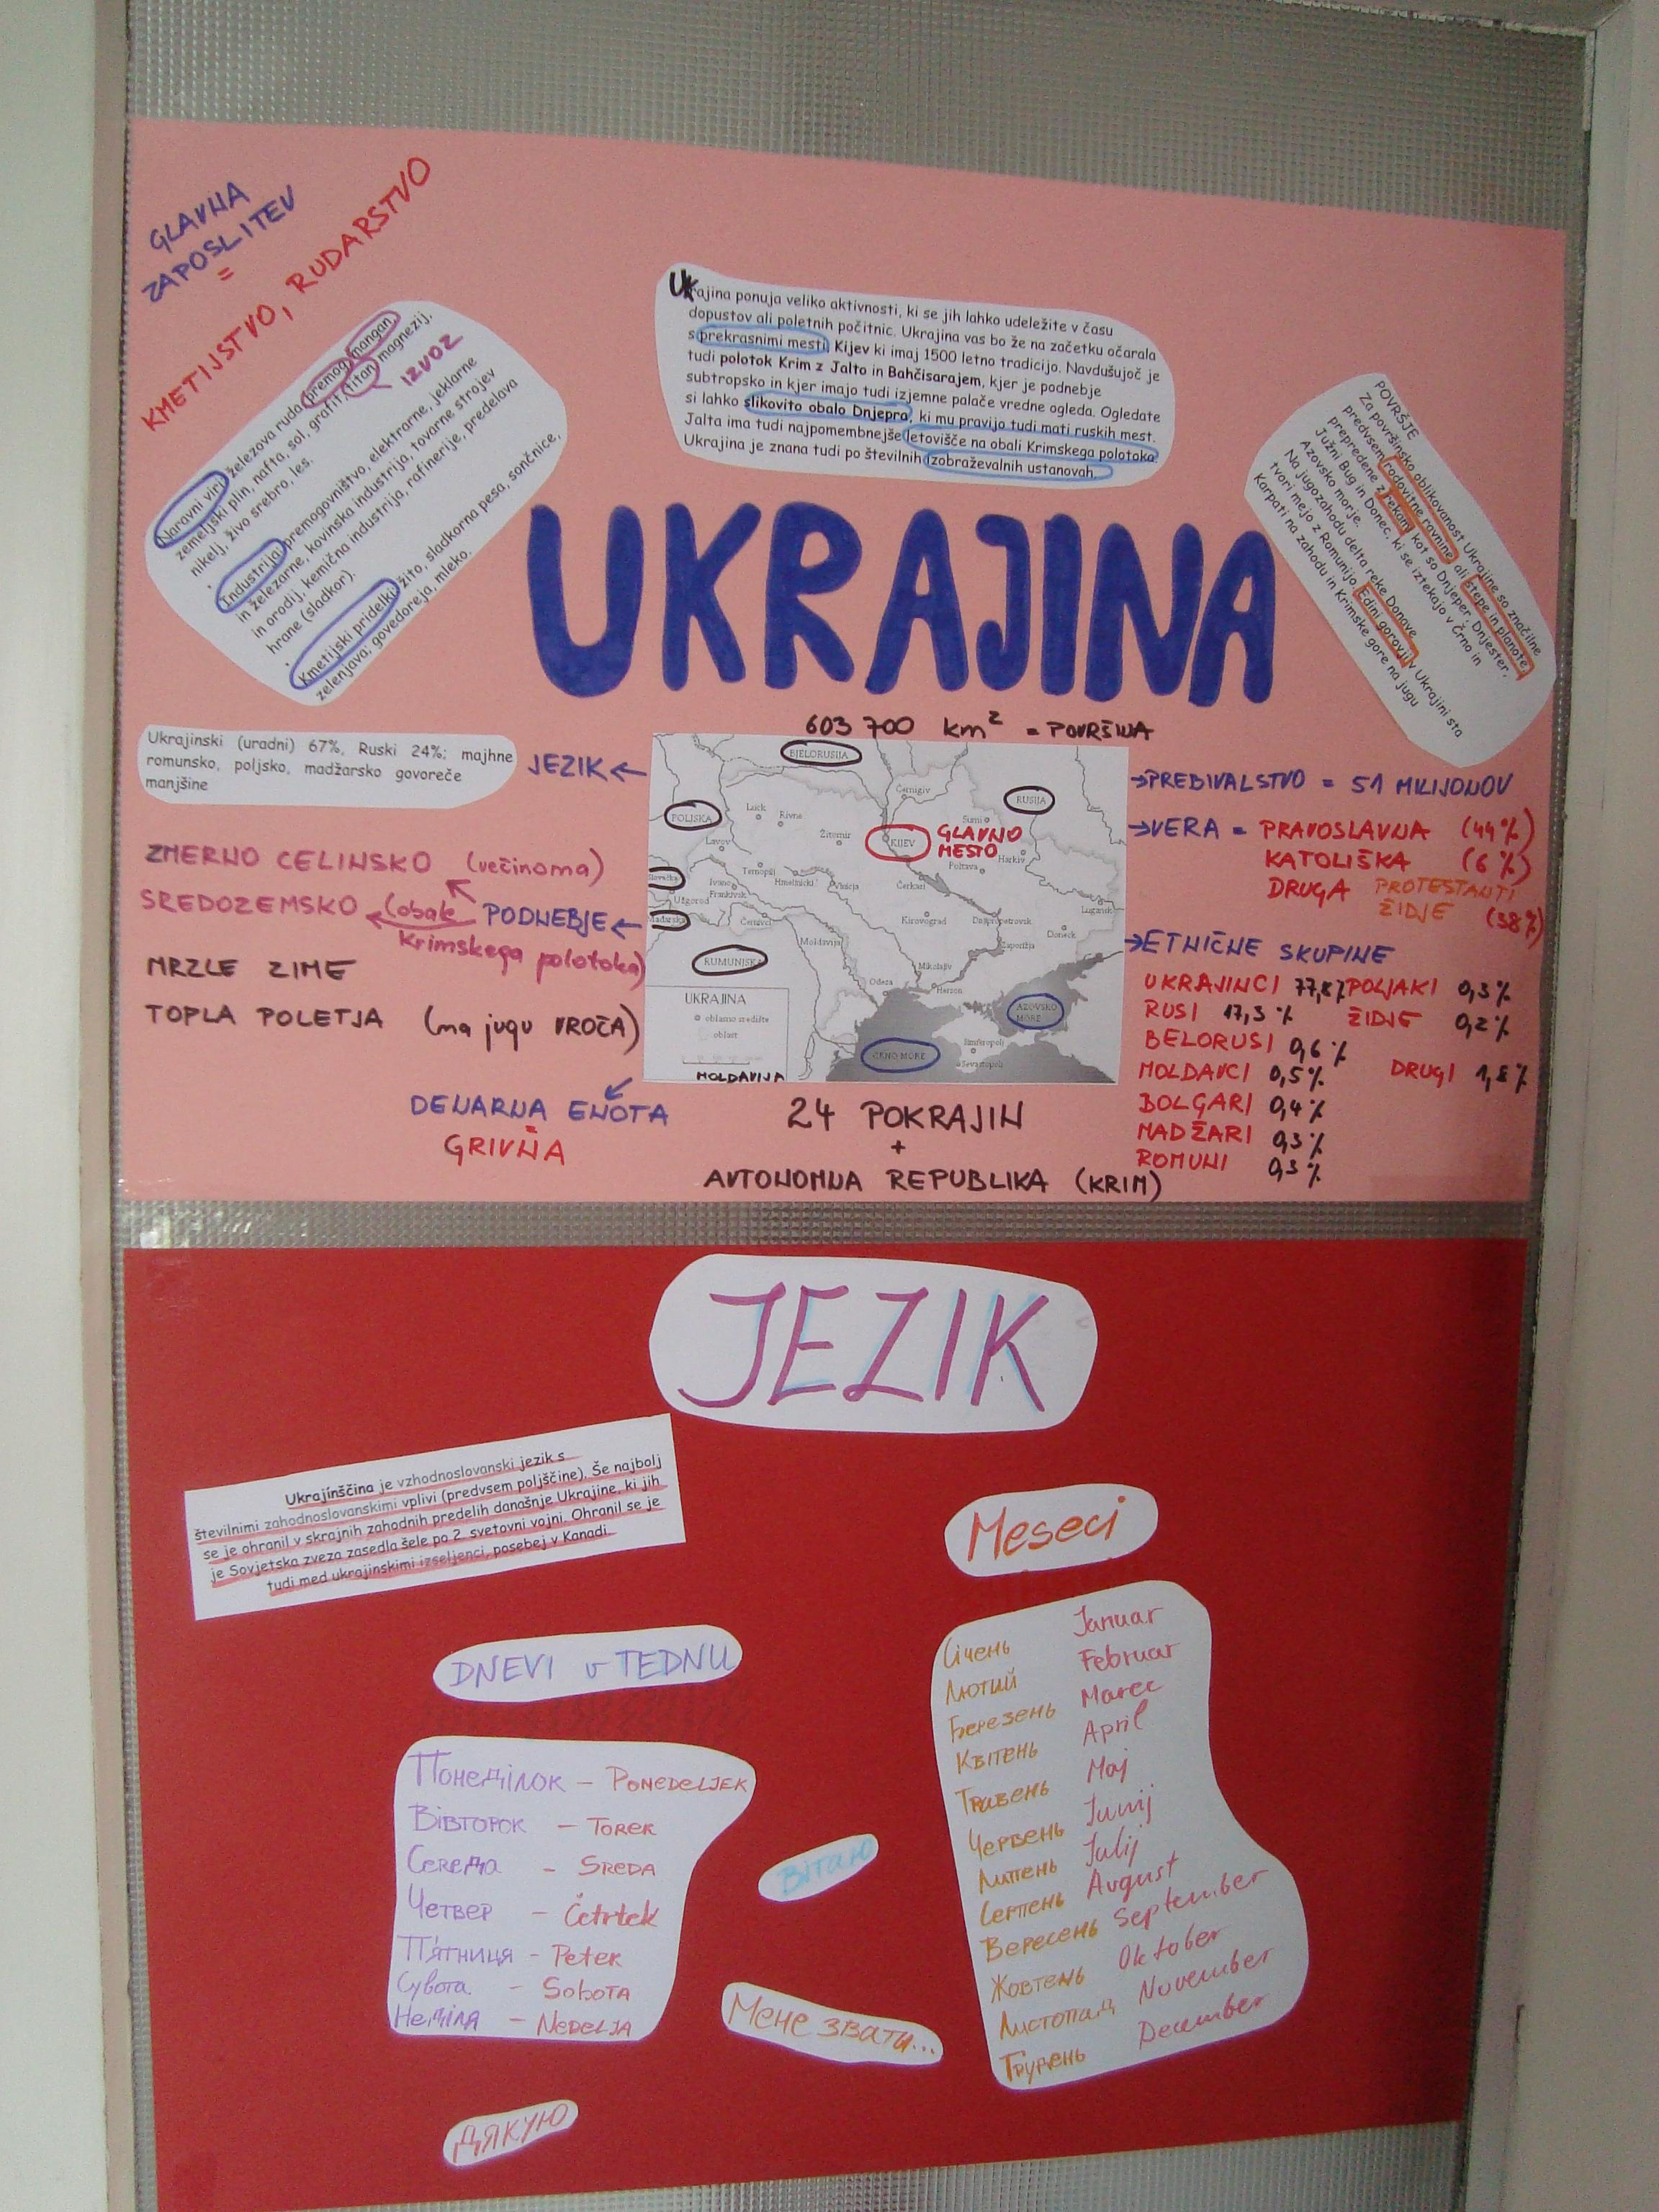 GLAVNA
ZAPOSLITEV
=
KMETIJSTVO, RUDARSTVO
Naravni viri: železova ruda, premog, mangan,
zemeljski plin, nafta, sol, grafit, titan, magnezij,
nikelj, živo srebro, les.
IZVOZ
Industrija: premogovništvo, elektrarne, jeklarne
in železarne, kovinska industrija, tovarne strojev
in orodij, kemična industrija, rafinerije, predelava
hrane (sladkor).
Kmetijski pridelki: žito, sladkorna pesa, sončnice,
zelenjava; govedoreja, mleko.
Ukrajina ponuja veliko aktivnosti, ki se jih lahko udeležite v času
dopustov ali poletnih počitnic. Ukrajina vas bo že na začetku očarala
s prekrasnimi mesti Kijev ki imaj 1500 letno tradicijo. Navdušujoč je
tudi polotok Krim z Jalto in Bahčisarajem, kjer je podnebje
subtropsko in kjer imajo tudi izjemne palače vredne ogleda. Ogledate
si lahko slikovito obalo Dnjepra, ki mu pravijo tudi mati ruskih mest.
Jalta ima tudi najpomembnejše letovišče na obali Krimskega polotoka.
Ukrajina je znana tudi po številnih izobraževalnih ustanovah.
POVRŠJE
Za površinsko oblikovanost Ukrajine so značilne
predvsem rodovitne ravnine ali stepe in planote,
prepredene z rekami kot so Dnjeper, Dnjester,
Južni Bug in Donec, ki se iztekajo v Črno in
Azovsko morje.
Na jugozahodu delta reke Donave
tvori mejo z Romunijo. Edini gorovji v Ukrajini sta
Karpati na zahodu in Krimske gore na jugu
UKRAJINA
603 700 km² = POVRŠINA
Ukrajinski (uradni) 67%, Ruski 24%; majhne
romunsko, poljsko, madžarsko govoreče
manjšine
JEZIK ←
ZMERNO CELINSKO (večinoma)
SREDOZEMSKO (obale
Krimskega polotoka)
PODNEBJE ←
MRZLE ZIME
TOPLA POLETJA (na jugu VROČA)
DENARNA ENOTA
=
GRIVNA
BJELORUSIJA
POLJSKA
RUSIJA
Černigiv
Luck
Rivne
Sumi
Žitomir
KIJEV
GLAVNO
MESTO
Lavov
Harkiv
Poltava
Ternopil
Hmelnicki
Vinicja
Čerkasi
Slovačka
Ivano
Frankivsk
Užgorod
Mađarska
Černivci
Kirovograd
Dnipropetrovsk
Lugansk
Doneck
Zaporižja
Moldavija
RUMUNJSKA
Mikolajiv
Odesa
Herson
UKRAJINA
oblasno središte
oblast
AZOVSKO
MORE
CRNO MORE
Simferopolj
Sevastopolj
MOLDAVIJA
24 POKRAJIN
+
AVTONOMNA REPUBLIKA (KRIM)
→PREBIVALSTVO = 51 MILIJONOV
→VERA = PRAVOSLAVNA (44%)
KATOLIŠKA (6%)
DRUGA PROTESTANTI
ŽIDJE (38%)
→ETNIČNE SKUPINE
UKRAJINCI 77,8% POLJAKI 0,3%
RUSI 17,3% ŽIDJE 0,2%
BELORUSI 0,6%
MOLDAVCI 0,5% DRUGI 1,8%
BOLGARI 0,4%
MADŽARI 0,3%
ROMUNI 0,3%
JEZIK
Ukrajinščina je vzhodnoslovanski jezik s
številnimi zahodnoslovanskimi vplivi (predvsem poljščine). Še najbolj
se je ohranil v skrajnih zahodnih predelih današnje Ukrajine, ki jih
je Sovjetska zveza zasedla šele po 2. svetovni vojni. Ohranil se je
tudi med ukrajinskimi izseljenci, posebej v Kanadi.
DNEVI v TEDNU
Понеділок – PONEDELJEK
Вівторок – TOREK
Середа – SREDA
Четвер – ČETRTEK
П'ятниця – PETEK
Субота – SOBOTA
Неділя – NEDELJA
Вітаю
Мене звати...
Дякую
Meseci
Січень Januar
Лютий Februar
Березень Marec
Квітень April
Травень Maj
Червень Junij
Липень Julij
Серпень August
Вересень September
Жовтень Oktober
Листопад November
Грудень December